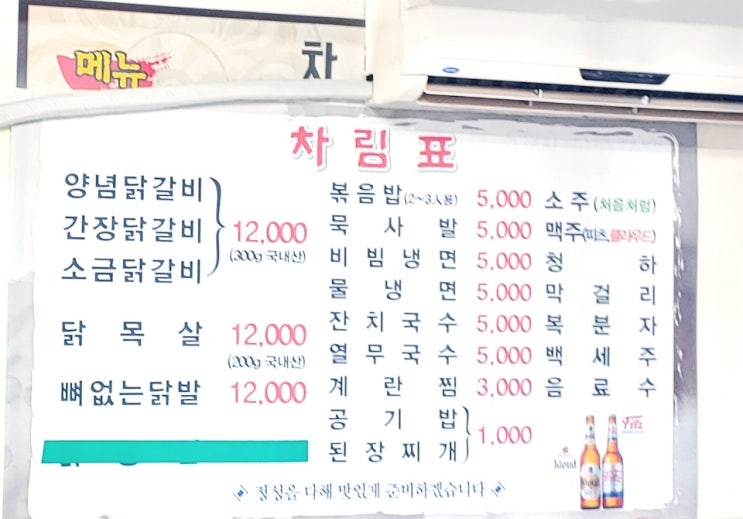 메뉴
차
차림표
양념닭갈비
간장닭갈비
소금닭갈비
12,000
(300g 국내산)
닭목살 12,000
(200g 국내산)
뼈없는닭발 12,000
볶음밥(2~3人용) 5,000
묵사발 5,000
비빔냉면 5,000
물냉면 5,000
잔치국수 5,000
열무국수 5,000
계란찜 3,000
공기밥
된장찌개
1,000
소주(처음처럼)
맥주(피츠,클라우드)
청하
막걸리
복분자
백세주
음료수
kloud
Fitz
정성을 다해 맛있게 준비하겠습니다